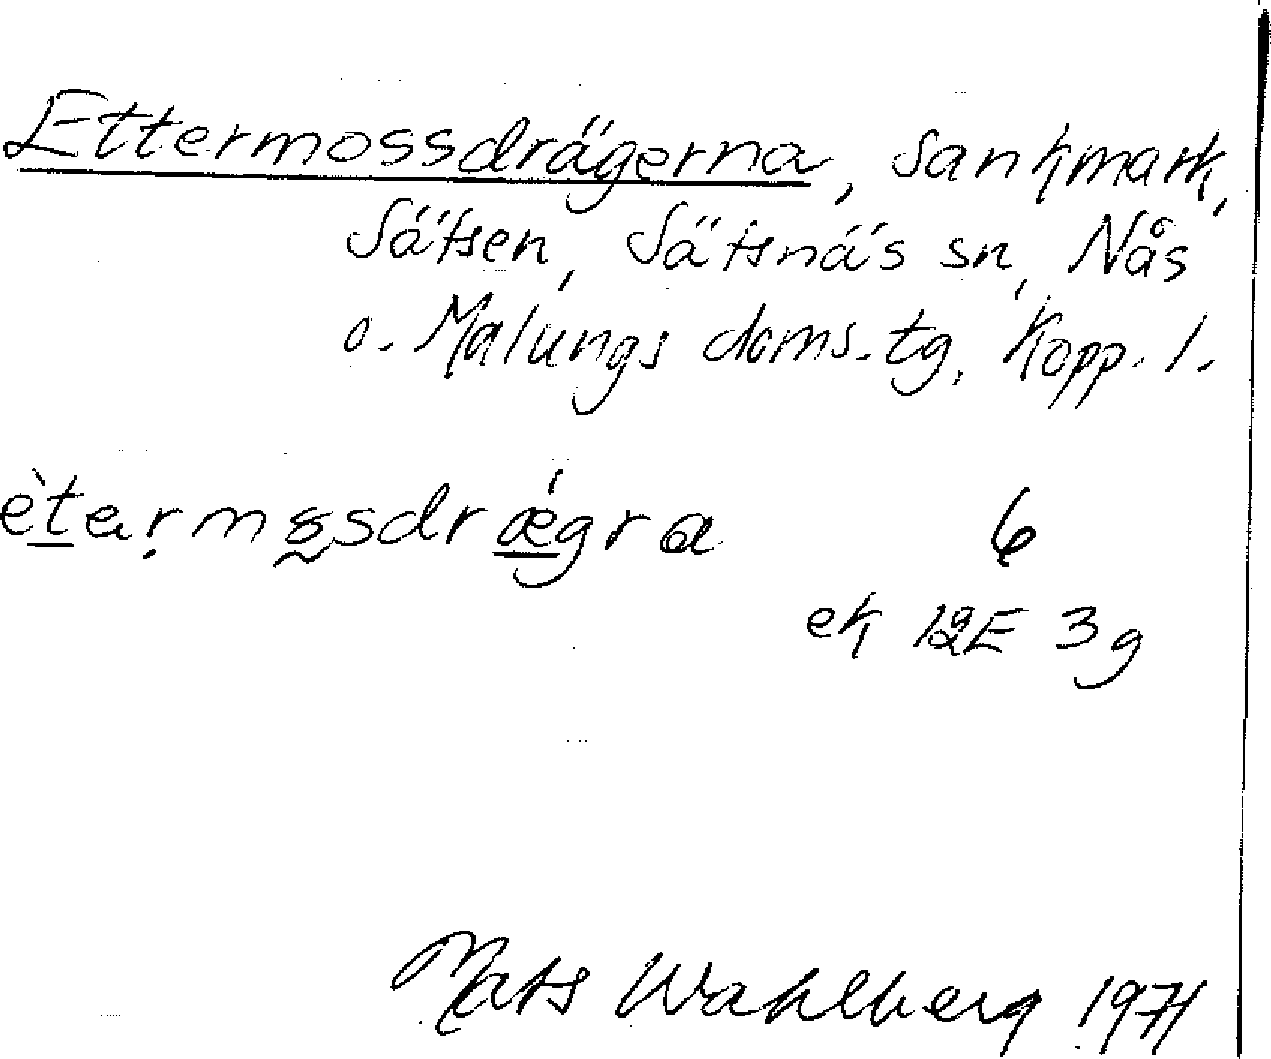 Ettermossdrägerna, sankmark,
Sätsen, Sätsnäs sn, Nås
o. Malungs doms. tg, Kopp. l.
ètarmɞsdrǽgra 6
ek 12E 3g
Mats Wahlberg 1971